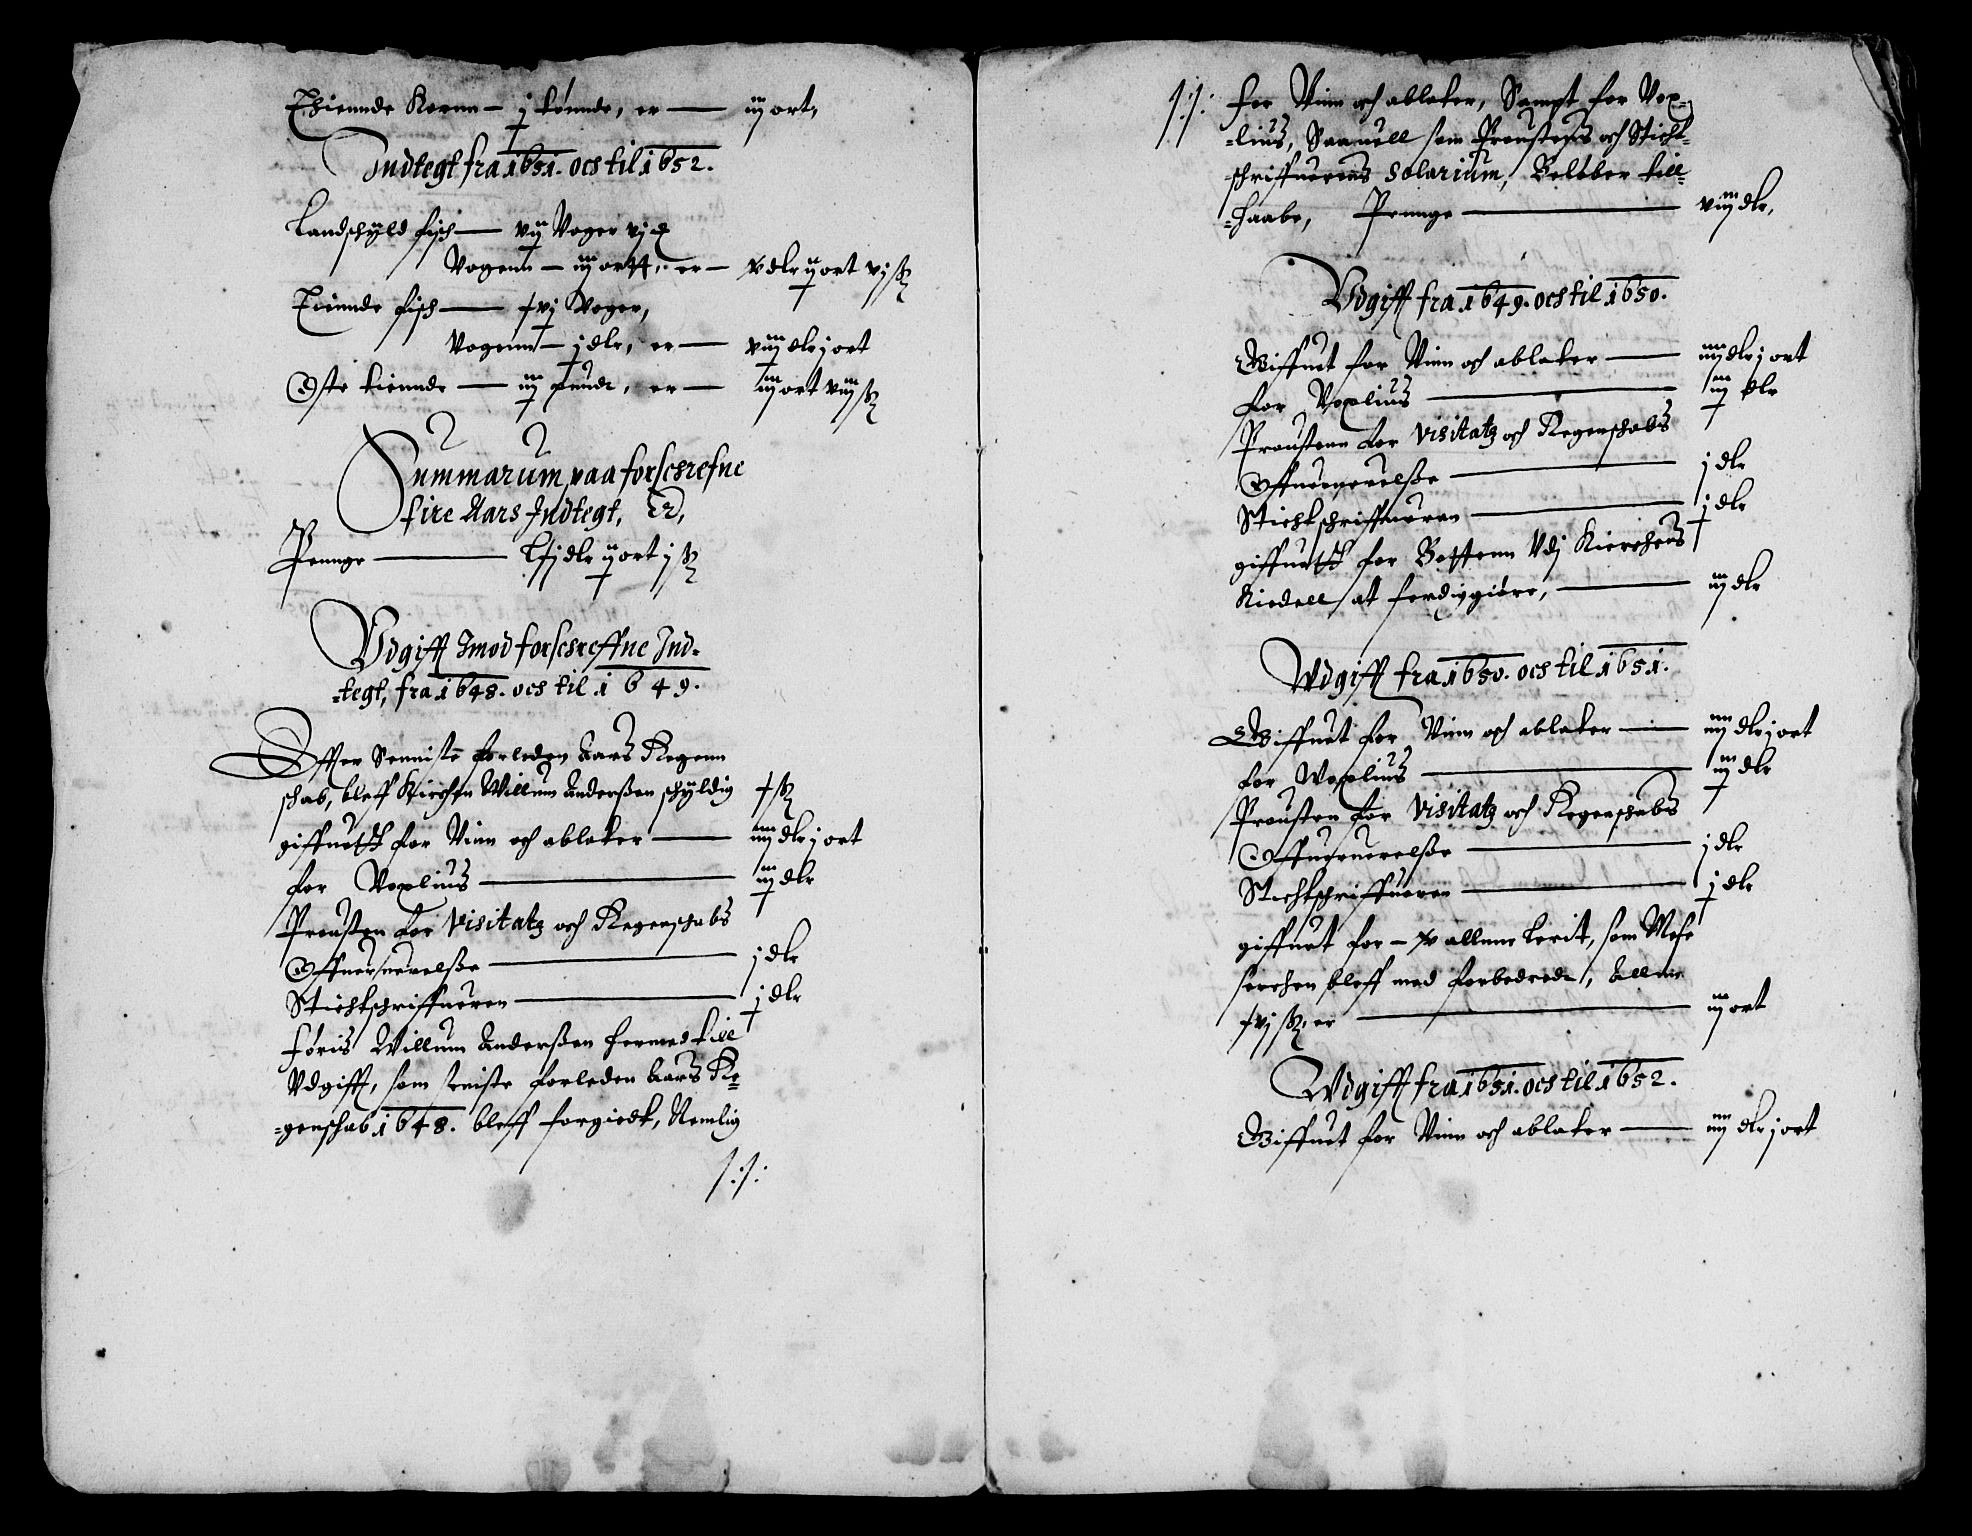 Thiennde Kornn – j tønnde, er — iij ort,
Indtegt fra 1651. och til 1652.
Landschyld fisch — vij Voger vj
Vogenn – iij ortt, er – v dlr ij ort vj ß
Tiennde fisch — vj Voger,
Vogenn – j dlr, er — viij dlr j ort
Oste tiennde — iij punde, er — iij ort viij ß
Summarum paa forschrefne
fire Aars Indtegt, Er,
Pennge — Lj dlr ij ort j ß
Vdgifft Imod forschreffne Ind-
-tegt, fra 1648. och til 1649.
Effter Senniste forleden Aars Regenn
schab, bleff Kirchen Willum Anderßen schyldig ß
giffuett for Viin och ablater — iiij dlr j ort
for Voxlius — iij dlr
Prousten for Visitatz och Regenschabs
Offueruerelße — j dlr
Stichtschriffueren — j dlr
føris Willum Anderßen hermed till
Vdgifft, som seniste forleden Aars Re-
-genschab 1648. bleff forgiedt, Nemlig
/:/:
/:/: for Viin och ablater, Sampt for Vox-
-lius, Saauell som Proustens och Sticht-
schriffuerens Solarium, Beløber till-
-haabe, Pennge — viij dlr,
Vdgifft fra 1649. och til 1650.
Giffuet for Viin och ablater — iiij dlr j ort
for Voxlius — iij dlr
Proustenn for Visitatz och Regenschabs
Offueruerelße — j dlr
Stichtschriffueren — j dlr
giffuett for Bottenn Vdj Kierchens
Kiedell at ferdiggiøre, — iij dlr
Wdgifft fra 1650. och til 1651.
Giffuet for Viin och ablater — iiij dlr j ort
for Woxlius — iij dlr
Prousten for Visitatz och Regenschabs
Offueruerelße — j dlr
Stichtschriffueren — j dlr
giffuet for – allune lerit, som Messe
serchen bleff med forbedrede, Allne
vj ß, er — iij ort
Wdgifft fra 1651. och til 1652.
Giffuet for Viin och ablater — iiij dlr j ort